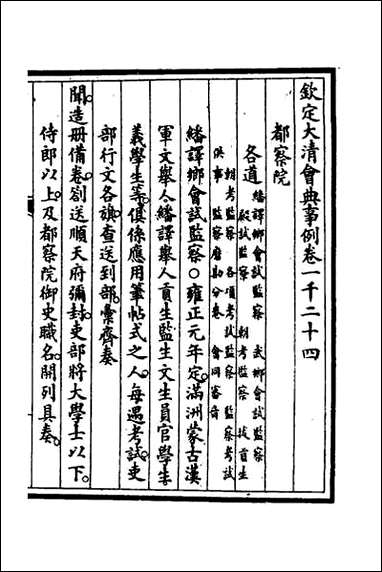 欽定大清會典事例卷一千二十四
都察院
各道
繙譯鄉會試監察 武鄉會試監察
殿試監察 朝考監察 拔貢生
朝考監察 各項考試監察 監察考試
供事 監察磨勘分卷 會同審音
繙譯鄉會試監察○雍正元年定滿洲蒙古漢
軍文舉人繙譯舉人貢生監生文生員官學生
義學生等俱係應用筆帖式之人每遇考試吏
部行文各旗查送到部彙齊奏
聞造册備卷劄送順天府彌封吏部將大學士以下
侍郎以上及都察院御史職名開列具奏